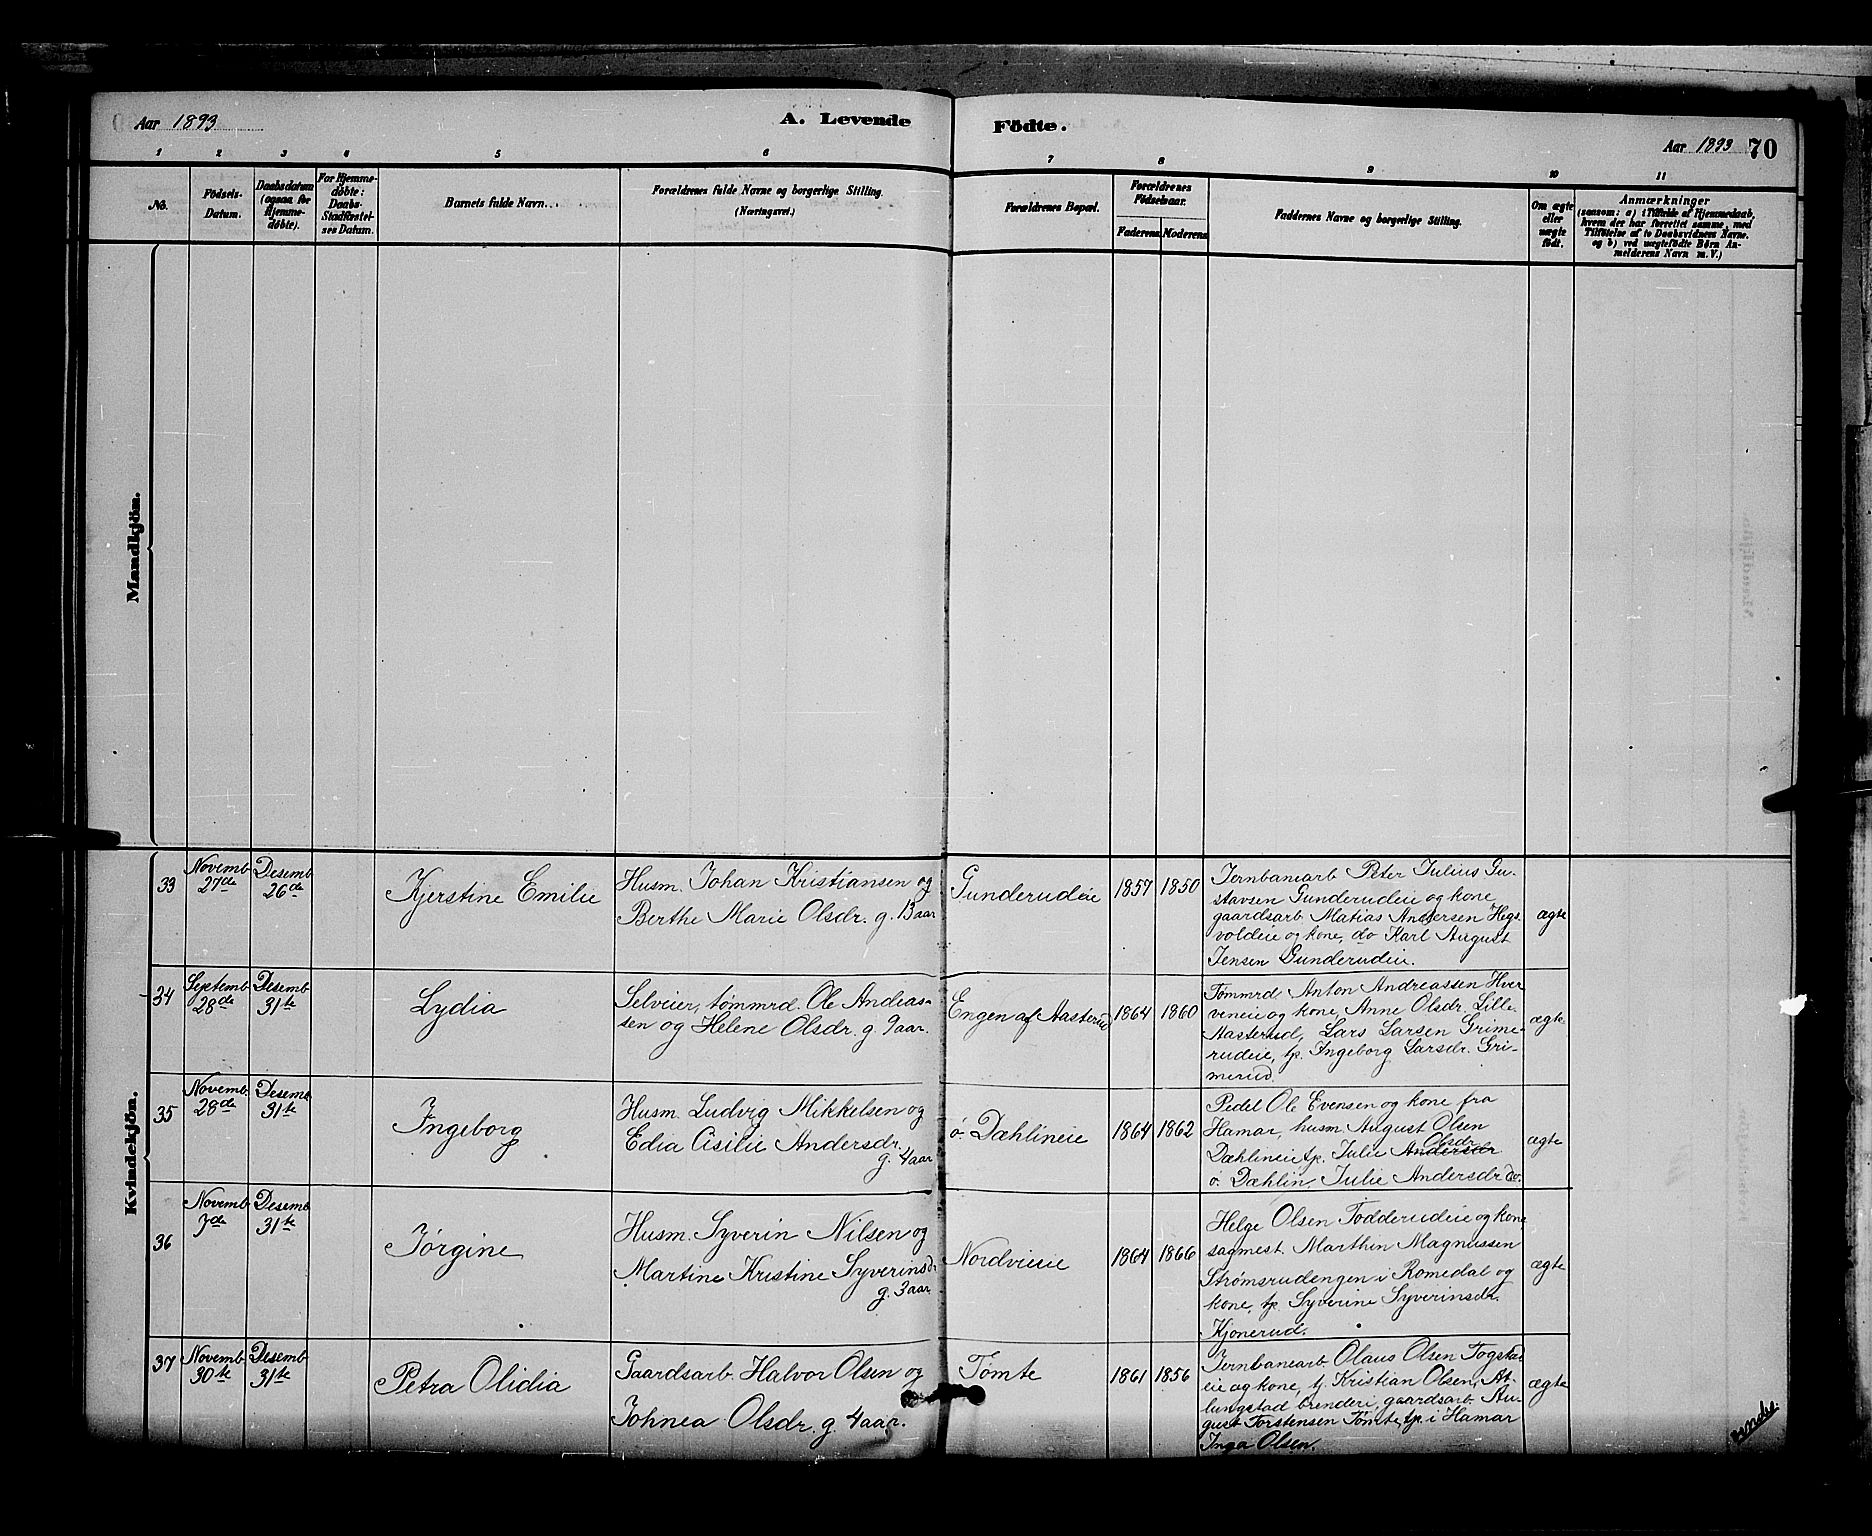 Aar 1893
A. Levende Födte.
Aar 1893 70
1 2 3 4 5 6 7 8 9 10 11
No.
Födsels-
Datum.
Daabsdatum
(ogsaa for
Hjemme-
døbte).
For Hjemme-
døbte:
Daabs-
Stadfæstel-
ses Datum.
Barnets fulde Navn.
Forældrenes fulde Navne og borgerlige Stilling.
(Næringsvei.)
Forældrenes Bopæl.
Forældrenes
Födselsaar.
Faderens. Moderens.
Faddernes Navne og borgerlige Stilling.
Om ægte
eller
uægte
födt.
Anmærkninger
(saasom: a) i Tilfælde af Hjemmedaab,
hvem der har forrettet samme, med
Tilföielse af to Daabsvidners Navne.
og b) ved uægtefödte Börn An-
melderens Navn m. V.)
Mandkjön.
Kvindekjön.
33
Novemb.
27de
Desemb.
26de
Kjerstine Emilie
Husm. Johan Kristiansen og
Berthe Marie Olsdr. g. 13 aar
Gunderudeie
1857
1850
Jernbanearb. Peter Julius Gu-
stavsen Gunderudeie og kone
gaardsarb. Matias Andersen Hegs
voldeie og kone, do Karl August
Jensen Gunderudeie.
ægte
34
Septemb.
28de
Desemb.
31te
Lydia
Selveier, tømmrd. Ole Andreas-
sen og Helene Olsdr. g. 9 aar.
Engen af Aasterud
1864
1860
Tømmrd. Anton Andreassen Hver
veneie og kone, Anne Olsdr. Lille
Aasterud, Lars Larsen Grime-
rudeie, tp. Ingeborg Larsdr. Gri-
merud.
ægte
35
Novemb.
28de
Desemb.
31te
Ingeborg
Husm. Ludvig Mikkelsen og
Edia Cisilie Andersdr.
g. 4 aar
ø. Dæhlineie
1864
1862
Pedel Ole Evensen og kone fra
Hamar, husm. August Olsen
Olsdr.
Dæhlineie tp. Julie Andersdr
ø. Dæhlin, Julie Andersdr do.
ægte
36
Novemb.
7de
Desemb.
31te
Jørgine
Husm. Syverin Nilsen og
Martine Kristine Syverinsdr.
g. 3 aar.
Nordvieie
1864
1866
Helge Olsen Todderudeie og kone
sagmest. Marthin Magnussen
Strømsrudengen i Romedal og
kone, tp. Syverine Syverinsdr.
Kjonerud.
ægte
37
Novemb.
30te
Desemb.
31te
Petra Olidia
Gaardsarb. Halvor Olsen og
Johnea Olsdr. g. 4 aar.
Tømte
1861
1856
Jernbanearb. Olaus Olsen Fogstad
eie og kone, tj. Kristian Olsen, At-
lungstad brenderi, gaardsarb. Au-
gust Torstensen Tømte, tp. i Hamar
Inga Olsen.
ægte